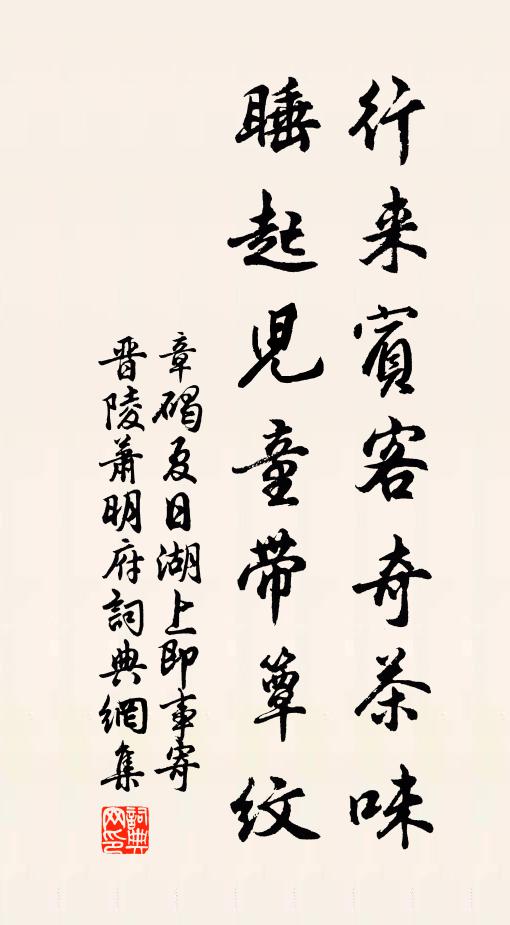 行来賓客奇茶味
睡起児童帶簟紋
章碣夏日湖上即事寄
晋陵蕭明府詞典網集
詞典網印